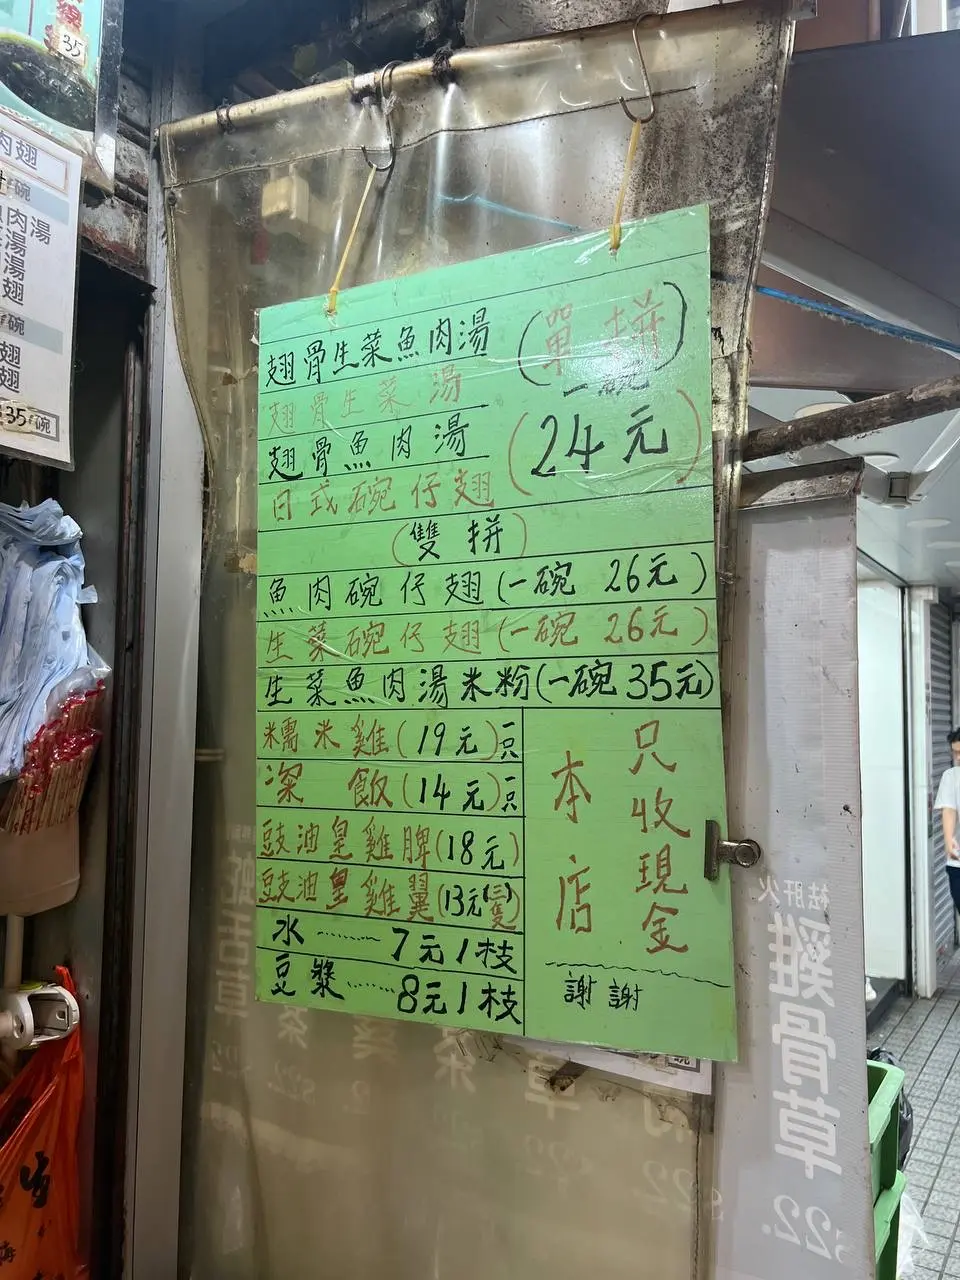 35
肉翅
碗
肉湯
湯
湯
翅
碗
翅
翅
35/碗
翅骨生菜魚肉湯
翅骨生菜湯
翅骨魚肉湯
日式碗仔翅
(單拼)
一碗
(24元)
(雙拼)
魚肉碗仔翅(一碗 26元)
生菜碗仔翅(一碗 26元)
生菜魚肉湯米粉(一碗35元)
糯米雞(19元)一只
深飯(14元)一只
豉油皇雞脾(18元)
豉油皇雞翼(13元(三隻)
水……7元1枝
豆漿……8元1枝
本店
只收現金
謝謝
祛肝火
雞骨草
$22.
蛇舌草